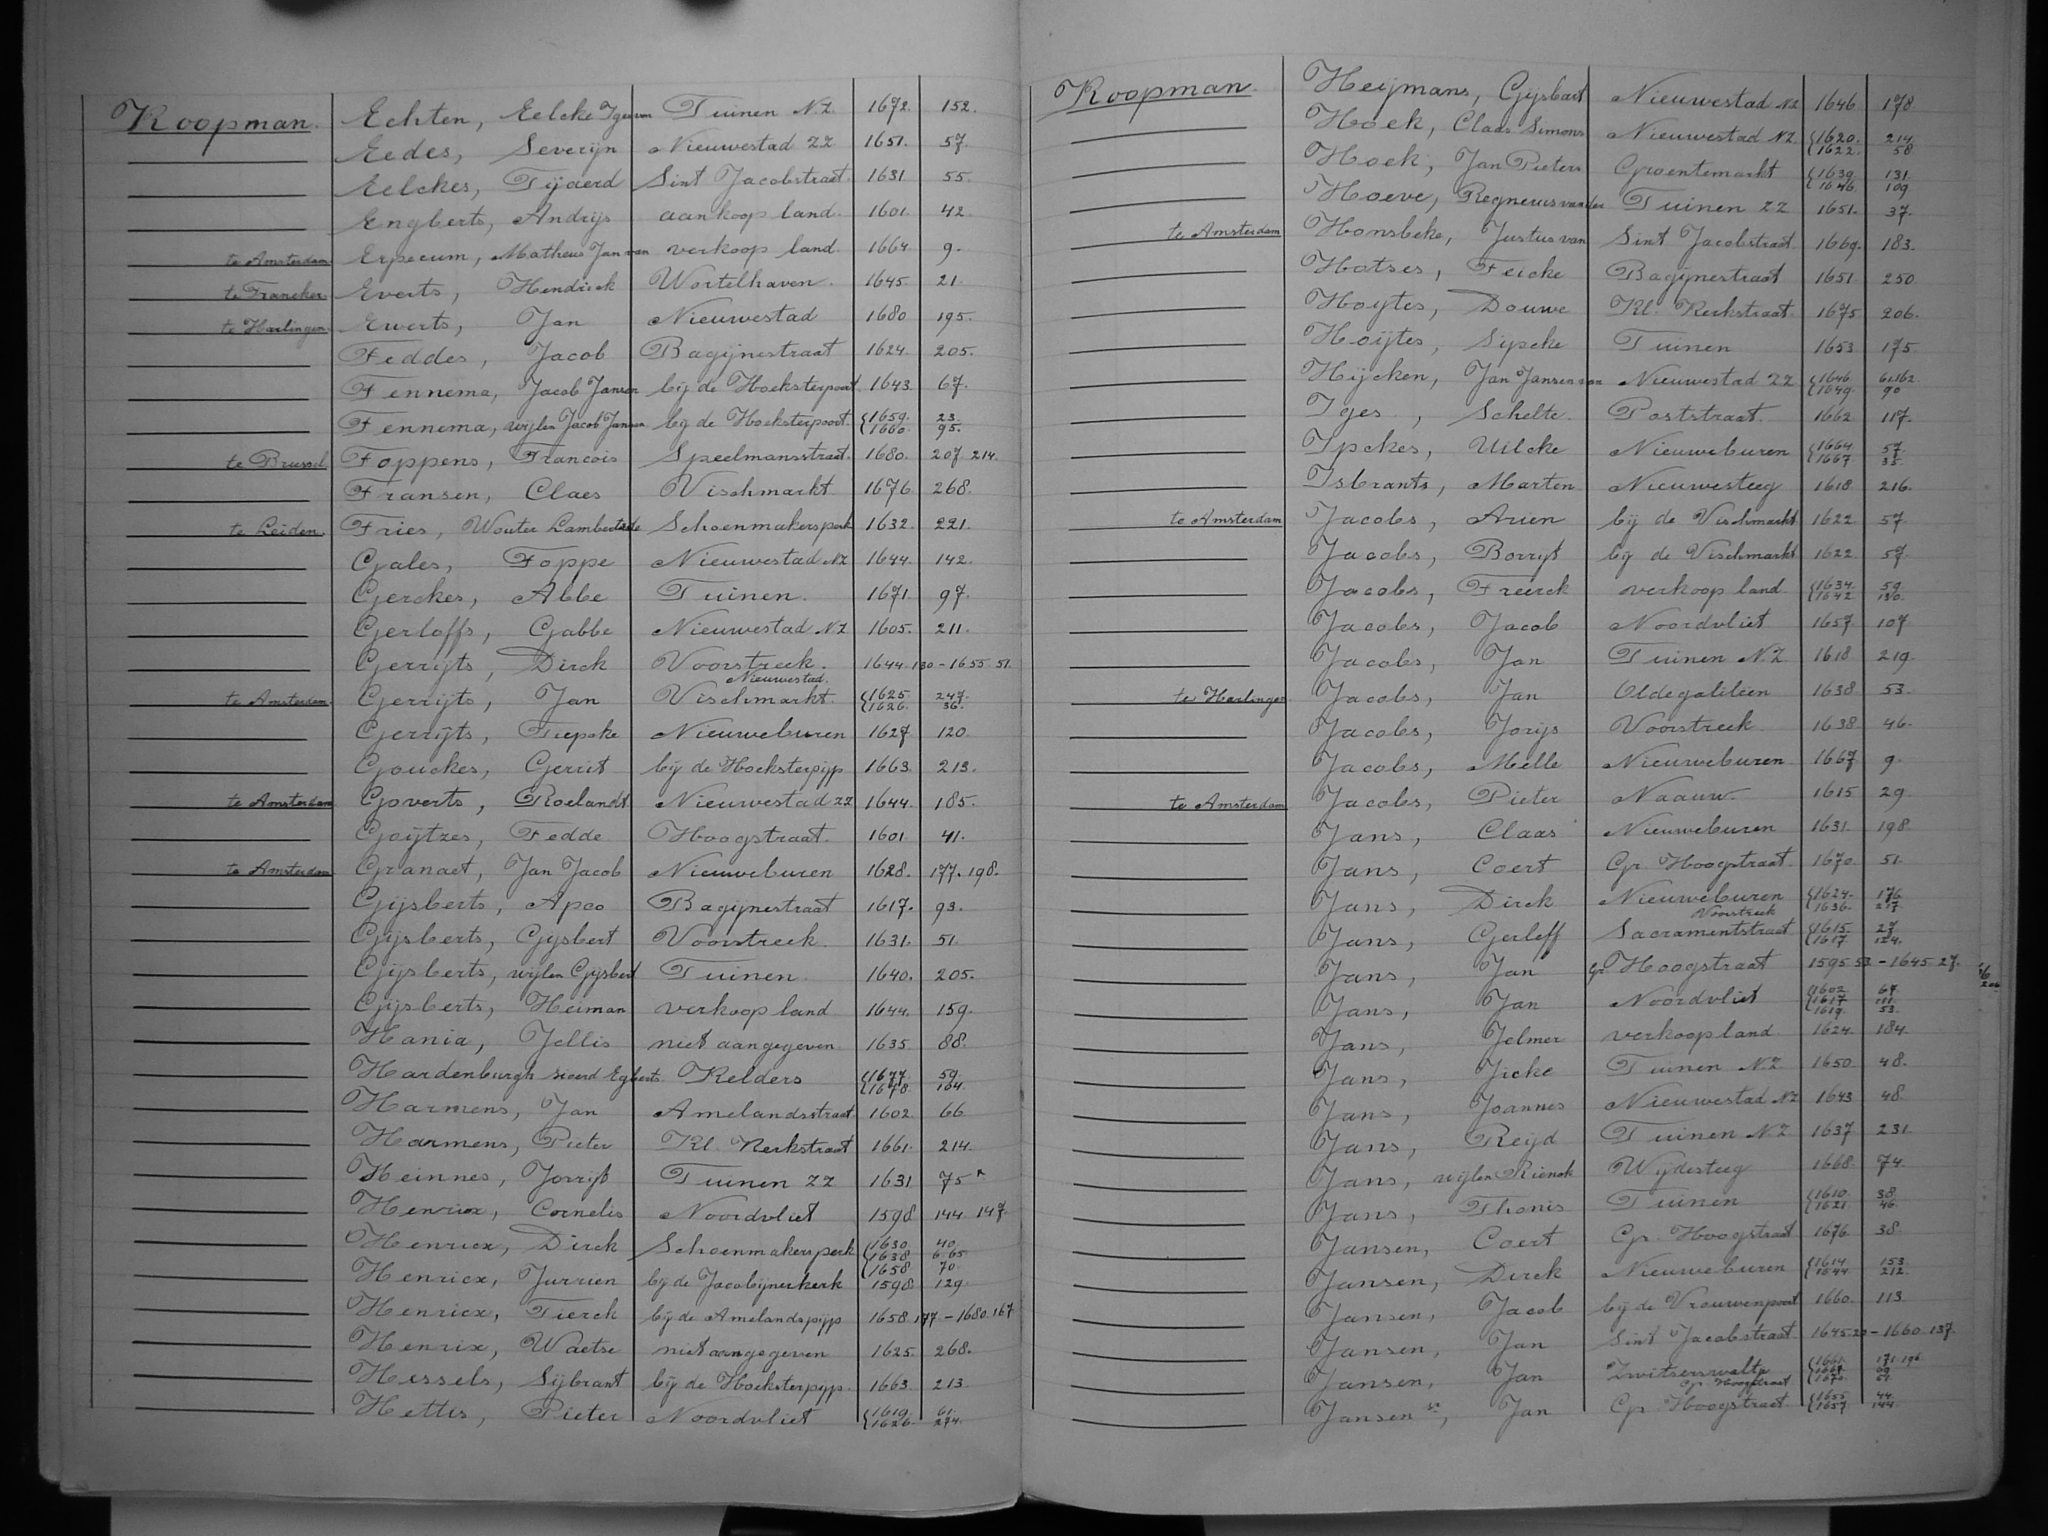 Koopman. Echten, Eelcke Igesvan Tuinen NZ. 1672. 152.
Eedes, Severijn Nieuwestad ZZ 1651. 57.
Eelckes, Tjaerd Sint Jacobstraat. 1631 55.
Engberts, Andrijs aankoop land. 1601. 42.
te Amsterdam Erpecum, Matheus Jan van verkoop land. 1664. 9.
te Franeker Everts, Hendrick Wortelhaven. 1645 21.
te Harlingen Everts, Jan Nieuwestad 1680 195.
Feddes, Jacob Bagijnestraat 1624. 205.
Fennema, Jacob Jansen bij de Hoeksterpoort. 1643. 67.
Fennema, wijlen Jacob Jansen bij de Hoeksterpoort. {1659. 23.
{1660. 95.
te Brussel Foppens, Francois Speelmansstraat. 1680. 207. 214.
Fransen, Claes Vischmarkt 1676. 268.
te Leiden. Fries, Wouter Lamberts de Schoenmakersperk 1632. 221.
Gales, Foppe Nieuwestad NZ 1644. 142.
Gerckes, Abbe Tuinen. 1671. 97.
Gerloffs, Gabbe Nieuwestad NZ 1605. 211.
Gerrijts, Dirck Voorstreek. 1644. 130 - 1655. 51.
Nieuwestad.
te Amsterdam. Gerrijts, Jan Vischmarkt. {1625. 247.
{1626. 36.
Gerrijts, Tiepcke Nieuweburen 1627. 120.
Gouckes, Gerrit bij de Hoeksterpijp 1663. 213.
te Amsterdam Goverts, Roelandt Nieuwestad ZZ 1644. 185.
Goijtzes, Fedde Hoogstraat. 1601. 41.
te Amsterdam Granaet, Jan Jacob Nieuweburen 1628. 177. 198.
Gijsberts, Apoo Bagijnestraat 1617. 93.
Gijsberts, Gijsbert Voorstreek. 1631. 51.
Gijsberts, wijlen Gijsbert Tuinen. 1640. 205.
Gijsberts, Heiman verkoop land 1644. 159.
Hania, Jellis niet aangegeven. 1635 88.
Hardenburgh, Sioerd Egberts. Kelders {1677. 59.
{1678. 164.
Harmens, Jan Amelandsstraat. 1602. 66
Harmens, Pieter Kl. Kerkstraat 1661. 214.
Heinnes, Jorrijt Tuinen ZZ 1631 75
Henricx, Cornelis Noordvliet 1598 144 147.
Henricx, Dirck Schoenmakersperk {1630. 40.
{1638 6 65
{1658 70.
Henricx, Jurrien bij de Jacobijnerkerk 1598. 129.
Henricx, Tierck bij de Amelandspijp 1658. 177 - 1680. 167
Henrix, Waetse niet aangegeven 1625. 268.
Hessels, Sijbrant bij de Hoeksterpijp. 1663. 213.
Hettis, Pieter Noordvliet {1619. 61.
{1626. 274.
Koopman. Heijmans, Gijsbart Nieuwestad NZ 1646. 178
Hoek, Claas Simons Nieuwestad NZ. {1620. 214.
{1622. 58.
Hoek, Jan Pieters Groentemarkt {1639. 131.
{1646. 109.
Hoeve, Regnerus van der Tuinen ZZ 1651. 37.
te Amsterdam Honsbeke, Justus van Sint Jacobstraat 1669. 183.
Hotses, Feicke Bagijnestraat 1651 250
Hoytes, Douwe Kl. Kerkstraat. 1675 206.
Hoijtes, Sijpcke Tuinen 1653 175.
Hijcken, Jan Jansen van Nieuwestad ZZ {1646. 61.162
{1649. 90
Iges, Schelte Poststraat. 1662 117.
Ipckes, Uilcke Nieuweburen {1664. 57.
{1667. 35.
Isbrants, Marten Nieuwesteeg 1618 216.
te Amsterdam Jacobs, Arien bij de Vischmarkt 1622. 57.
Jacobs, Borrijt bij de Vischmarkt 1622 57.
Jacobs, Freerck verkoop land {1634. 59.
{1642 150.
Jacobs, Jacob Noordvliet 1657 107
Jacobs, Jan Tuinen NZ 1618 219.
te Harlingen Jacobs, Jan Oldegalileën 1638. 53.
Jacobs, Jorijs Voorstreek 1638 46.
Jacobs, Melle Nieuweburen 1667. 9.
te Amsterdam Jacobs, Pieter Naauw. 1615 29
Jans, Claas Nieuweburen 1631. 198.
Jans, Coert Gr. Hoogstraat. 1670. 51.
Jans, Dirck Nieuweburen {1624. 176
Voorstreek {1636. 217.
Jans, Gerleff Sacramentstraat {1615. 27.
{1617 124.
Jans, Jan Gr Hoogstraat 1595 52 - 1645. 27.
Jans, Jan Noordvliet {1602 64.
{1617 111.
{1619. 53.
Jans, Jelmer verkoop land. 1624. 184.
Jans, Jicke Tuinen NZ 1650. 48.
Jans, Joannes Nieuwestad NZ 1643 48.
Jans, Reijd Tuinen NZ 1637 231.
Jans, wijlen Rienck Wijdesteeg 1668. 74.
Jans, Thonis Tuinen {1610. 38.
{1621. 46.
Jansen, Coert Gr. Hoogstraat 1676. 38.
Jansen, Dirck Nieuweburen {1614. 153.
{1644 212.
Jansen, Jacob bij de Vrouwenpoort 1660. 113.
Jansen, Jan Sint Jacobstraat 1645. 20 - 1660. 137.
Jansen, Jan Zwitserswaltje {1661. 171. 196.
Gr. Hoogstraat
Jansen sr, Jan Gr. Hoogstraat {1655. 44.
{1657. 144.